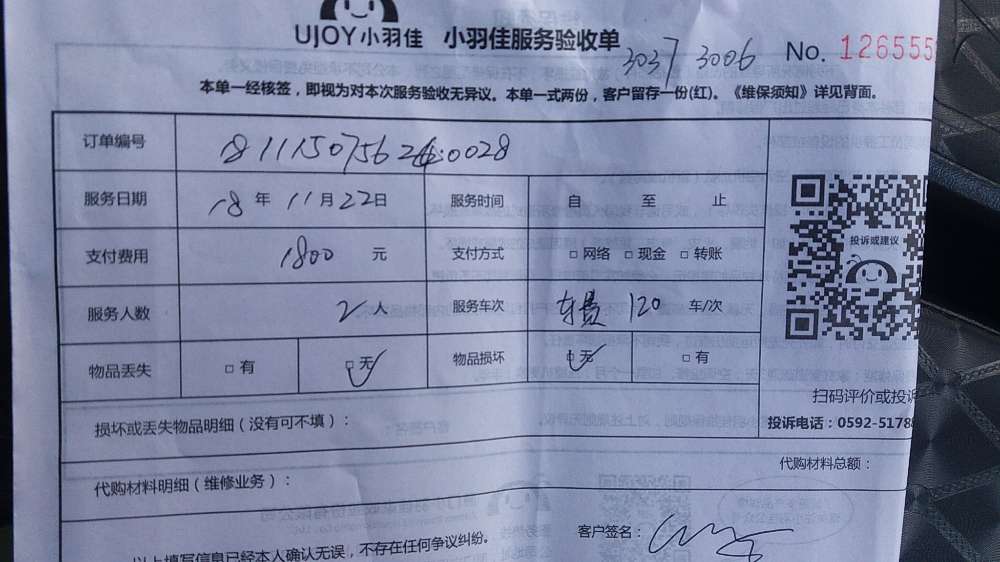 UJOY小羽佳 小羽佳服务验收单 3037 3006 No. 1265555
本单一经核签，即视为对本次服务验收无异议。本单一式两份，客户留存一份(红)。《维保须知》详见背面。
订单编号
服务日期 18 年 11 月 22 日 服务时间 自 至 止
支付费用 1800 元 支付方式 □ 网络 □ 现金 □ 转账
投诉或建议
服务人数 2 人 服务车次 车费 120 车/次
物品丢失 □ 有 □ 无 ✓ 物品损坏 □ 无 ✓ □ 有
扫码评价或投诉
损坏或丢失物品明细（没有可不填）：
投诉电话：0592-5178
代购材料总额：
代购材料明细（维修业务）：
客户签名：
以上填写信息已经本人确认无误，不存在任何争议纠纷。